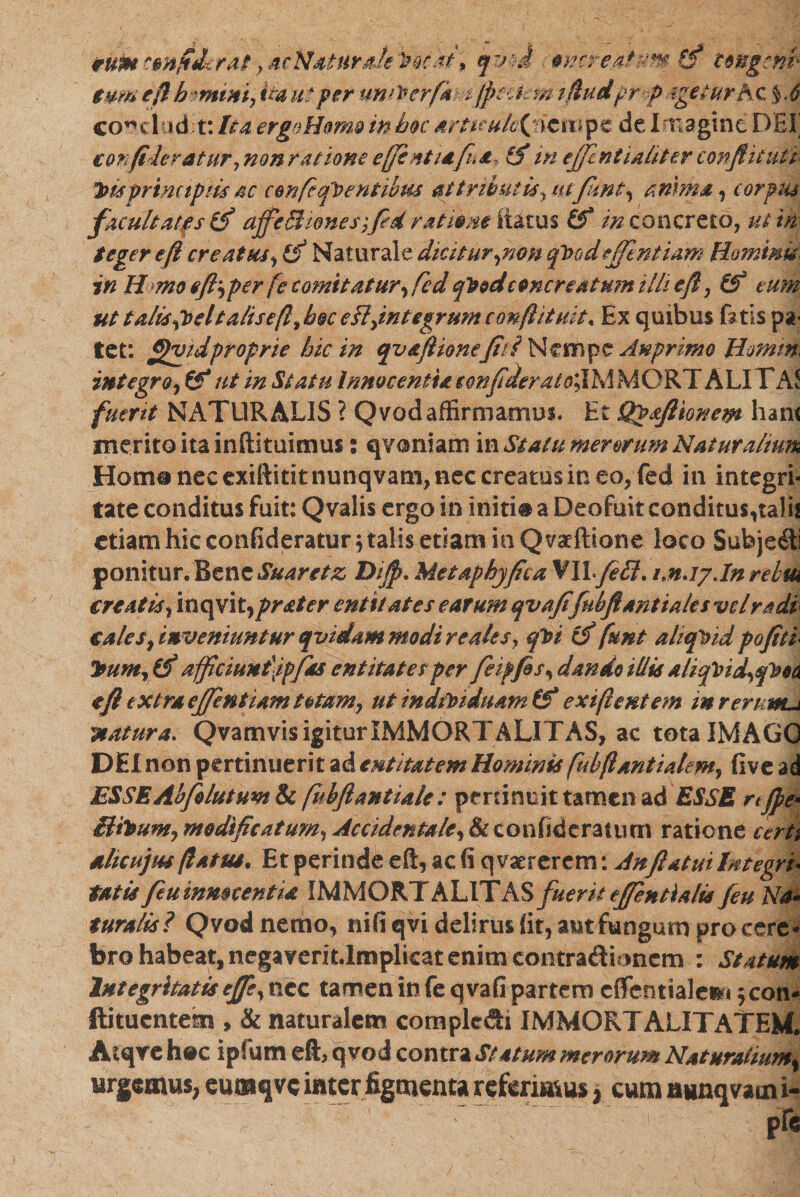 eum considerat, ac Naturale vocat, qvod concreatum & congeni-
tum est homini, ita ut per universam speciem istud propagetur hc §.6
concludit: Ita ergo Homo in hoc articulo (nempe de Imagine DEI)
consideratur, non ratione essentiæ suæ, & in essentialiter constituti-
vis principiis ac conseqventibus attributis, ut sunt, anima, corpus
facultates & affectiones; sed ratione status & in concreto, ut in
teger est creatus, & Naturale dicitur, non qvod essentiam Hominis
in Homo est; per se comitatur, sed qvod concreatum illi est, & eum
ut talis, vel talis est, hoc est, integrum constituit. Ex quibus satis pa-
tet: Qvid proprie hic in qvæstione sit? Nempe An primo Homin.
integro, & ut in Statu Innocentiæ considerato; IMMORTALITAS
fuerit NATURALIS? Qvod affirmamus. Et Qvæstionem hanc
merito ita instituimus: qvoniam in Statu merorum Naturalium
Homo nec existitit nunqvam, nec creatus in eo, sed in integri-
tate conditus fuit: Qvalis ergo in initio a Deo fuit conditus, talis
etiam hic consideratur; talis etiam in Qvæstione loco Subjecti
ponitur. Bene Suaretz Disp. Metaphysica VII. sect. 1.n.17. In rebus
creatis, inqvit, præter entitates earum qvasi substantiales vel radi
cales, inveniuntur qvidam modi reales, qvi & sunt aliqvid positi-
vum, & afficiunt ipsas entitates per seipsos, dando illis aliqvid, qvod
est extra essentiam totam, ut individuam & existentem in rerum
natura. Qvamvis igitur IMMORTALITAS, ac tota IMAGO
DEI non pertinuerit ad entitatem Hominis substantialem, sive ad
ESSE Absolutum & substantiale: pertinuit tamen ad ESSE respe-
ctivum, modificatum, Accidentale, & consideratum ratione certi
alicujus status. Et perinde est, ac si qværerem: An statui Integri-
tatis seu innocentiæ IMMORTALITAS fuerit essentialis seu Na-
turalis? Qvod nemo, nisi qvi delirus sit, aut fungum pro cere-
bro habeat, negaverit. Implicat enim contradictionem: Statum
Integritatis esse, nec tamen in se qvasi partem essentialem; con-
stituentem, & naturalem complecti IMMORTALITATEM.
Atqve hoc ipsum est, qvod contra Statum merorum Naturalium,
urgemus, eumqve inter figmenta referimus; cum nunqvam i-
pse